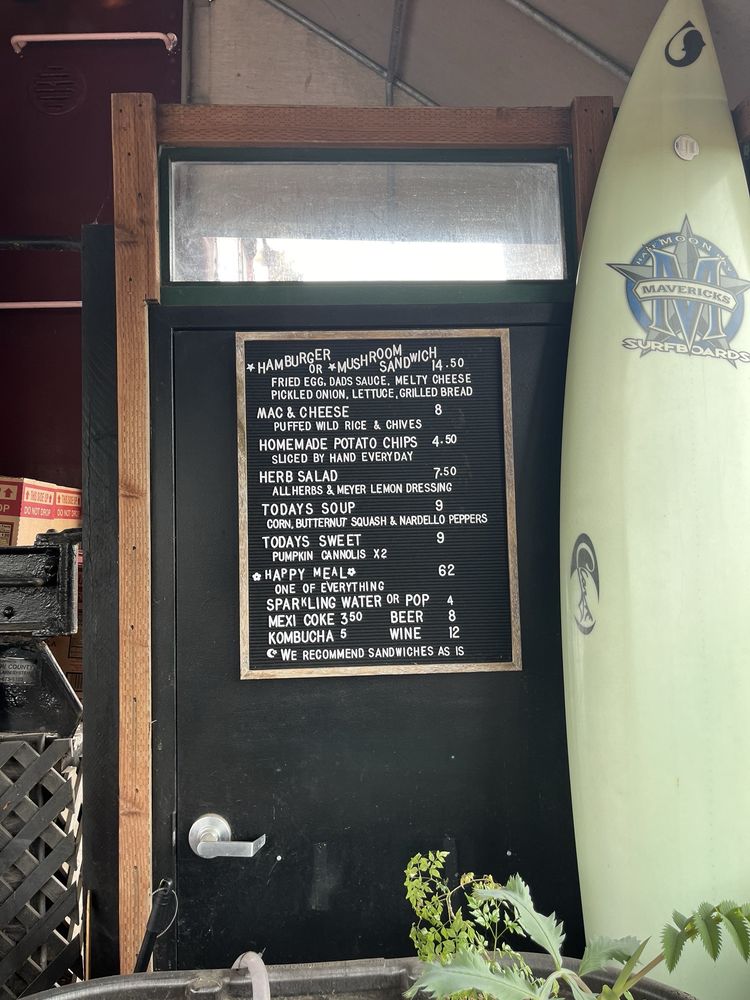 *HAMBURGER OR *MUSHROOM SANDWICH 14.50
FRIED EGG, DADS SAUCE, MELTY CHEESE
PICKLED ONION, LETTUCE, GRILLED BREAD
MAC & CHEESE 8
PUFFED WILD RICE & CHIVES
HOMEMADE POTATO CHIPS 4.50
SLICED BY HAND EVERYDAY
HERB SALAD 7.50
ALL HERBS & MEYER LEMON DRESSING
TODAYS SOUP 9
CORN, BUTTERNUT SQUASH & NARDELLO PEPPERS
TODAYS SWEET 9
PUMPKIN CANNOLIS X2
✿HAPPY MEAL✿ 62
ONE OF EVERYTHING
SPARKLING WATER OR POP 4
MEXI COKE 3.50 BEER 8
KOMBUCHA 5 WINE 12
WE RECOMMEND SANDWICHES AS IS
HALF MOON BAY
M
MAVERICKS
SURFBOARDS
THIS SIDE UP
DO NOT DROP
THIS SIDE UP
DO NOT DROP